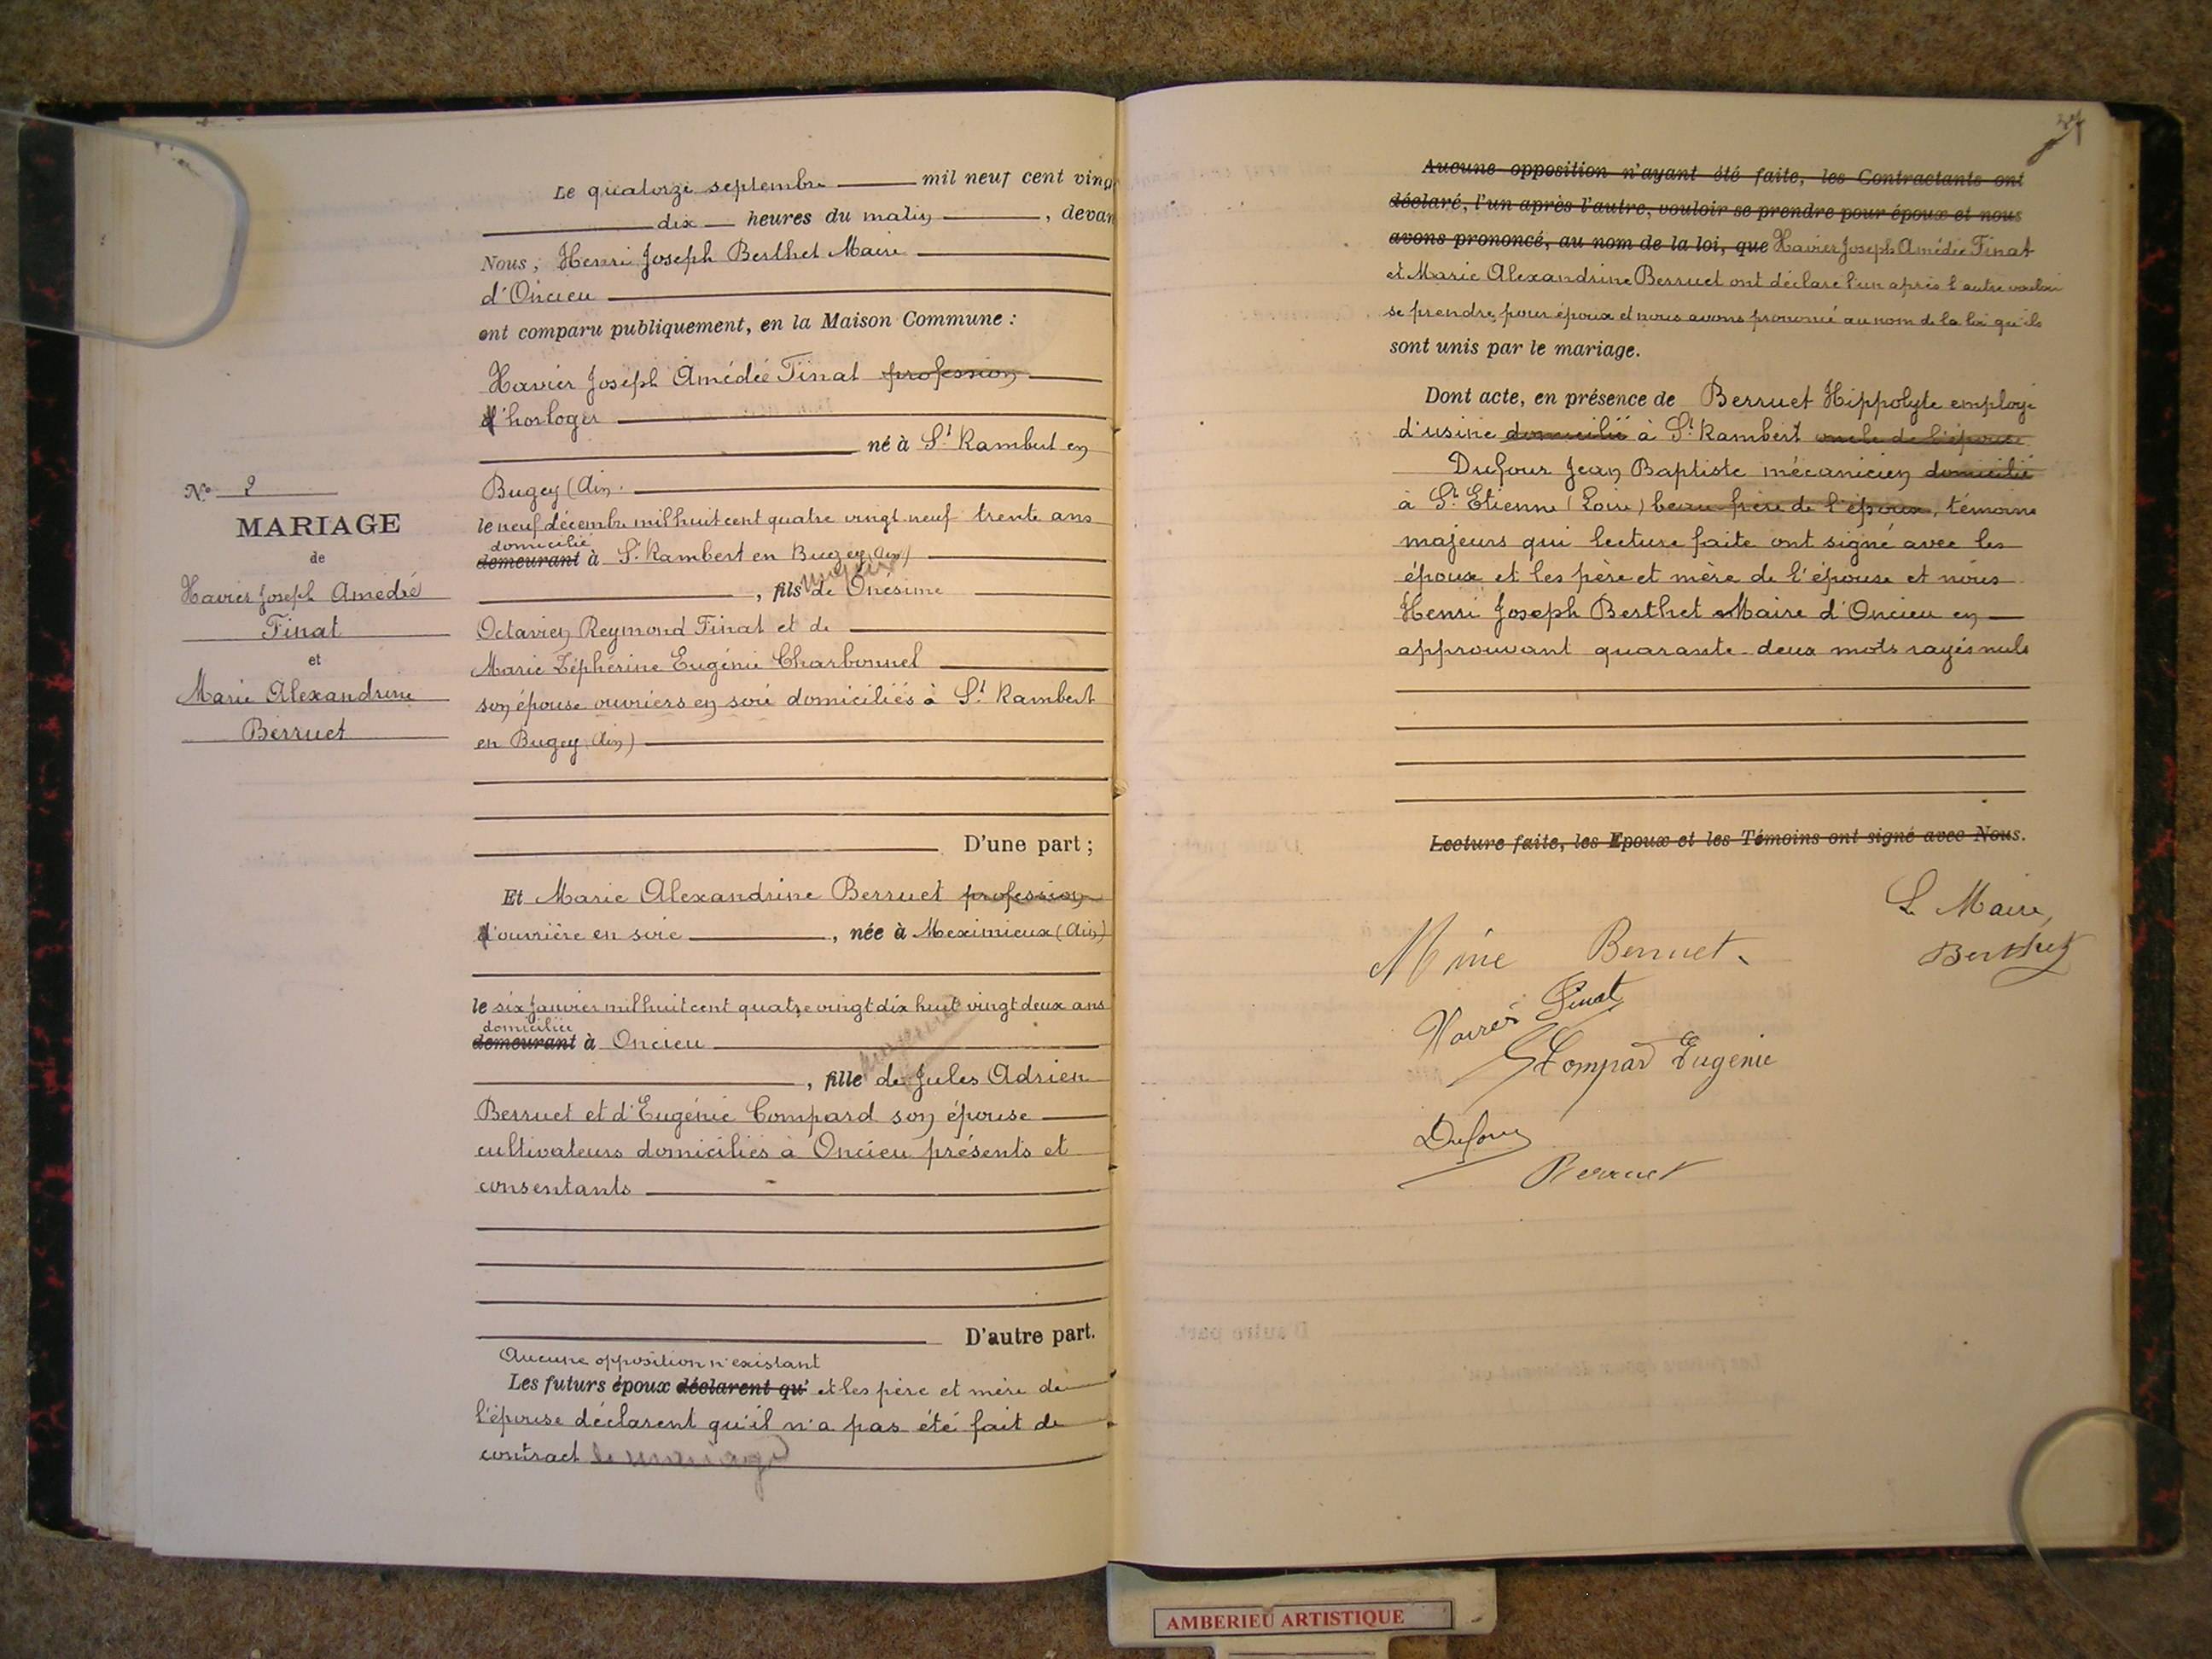 Le quatorze septembre mil neuf cent ving
dix heures du matin, devan
Nous, Henri Joseph Berthet Maire
d'Oncieu
ont comparu publiquement, en la Maison Commune :
Xavier Joseph Amédée Tinat profession
d'horloger
né à St Rambert en
Bugey (Ain.
le neuf décembre mil huit cent quatre vingt neuf trente ans
domicilié
demeurant à St Rambert en Bugey (Ain)
majeur
, fils de Onésime
Octavien Reymond Tinat et de
Marie Zéphérine Eugénie Charbonnel
son épouse ouvriers en soie domiciliés à St Rambert
en Bugey (Ain)
D'une part ;
Et Marie Alexandrine Berruet profession
d'ouvrière en soie, née à Meximieux (Ain)
le six Janvier mil huit cent quatre vingt dix huit vingt deux ans
domiciliée
demeurant à Oncieu
majeure
, fille de Jules Adrien
Berruet et d'Eugénie Compard son épouse
cultivateurs domiciliés à Oncieu présents et
consentants
D'autre part.
Aucune opposition n'existant
Les futurs époux déclarent qu' et les père et mère de
l'épouse déclarent qu'il n'a pas été fait de
contract de mariage
No 2
MARIAGE
de
Xavier Joseph Amédé
Tinat
et
Marie Alexandrine
Berruet
Aucune opposition n'ayant été faite, les Contractants ont
déclaré, l'un après l'autre, vouloir se prendre pour époux et nous
avons prononcé, au nom de la loi, que Xavier Joseph Amédée Tinat
et Marie Alexandrine Berruet ont déclaré l'un après l'autre vouloir
se prendre pour époux et nous avons prononcé au nom de la loi qu'ils
sont unis par le mariage.
Dont acte, en présence de Berruet Hippolyte employé
d'usine domicilié à St Rambert oncle de l'épouse
Dufour Jean Baptiste mécanicien domicilié
à St Etienne (Loire) beau-frère de l'époux, témoins
majeurs qui lecture faite ont signé avec les
époux et les père et mère de l'épouse et nous
Henri Joseph Berthet Maire d'Oncieu en
approuvant quarante-deux mots rayés nuls
Lecture faite, les Epoux et les Témoins ont signé avec Nous.
Le Maire,
Berthet
Berruet
Xavier Tinat
Compard Eugénie
Dufour
Berruet
AMBERIEU ARTISTIQUE